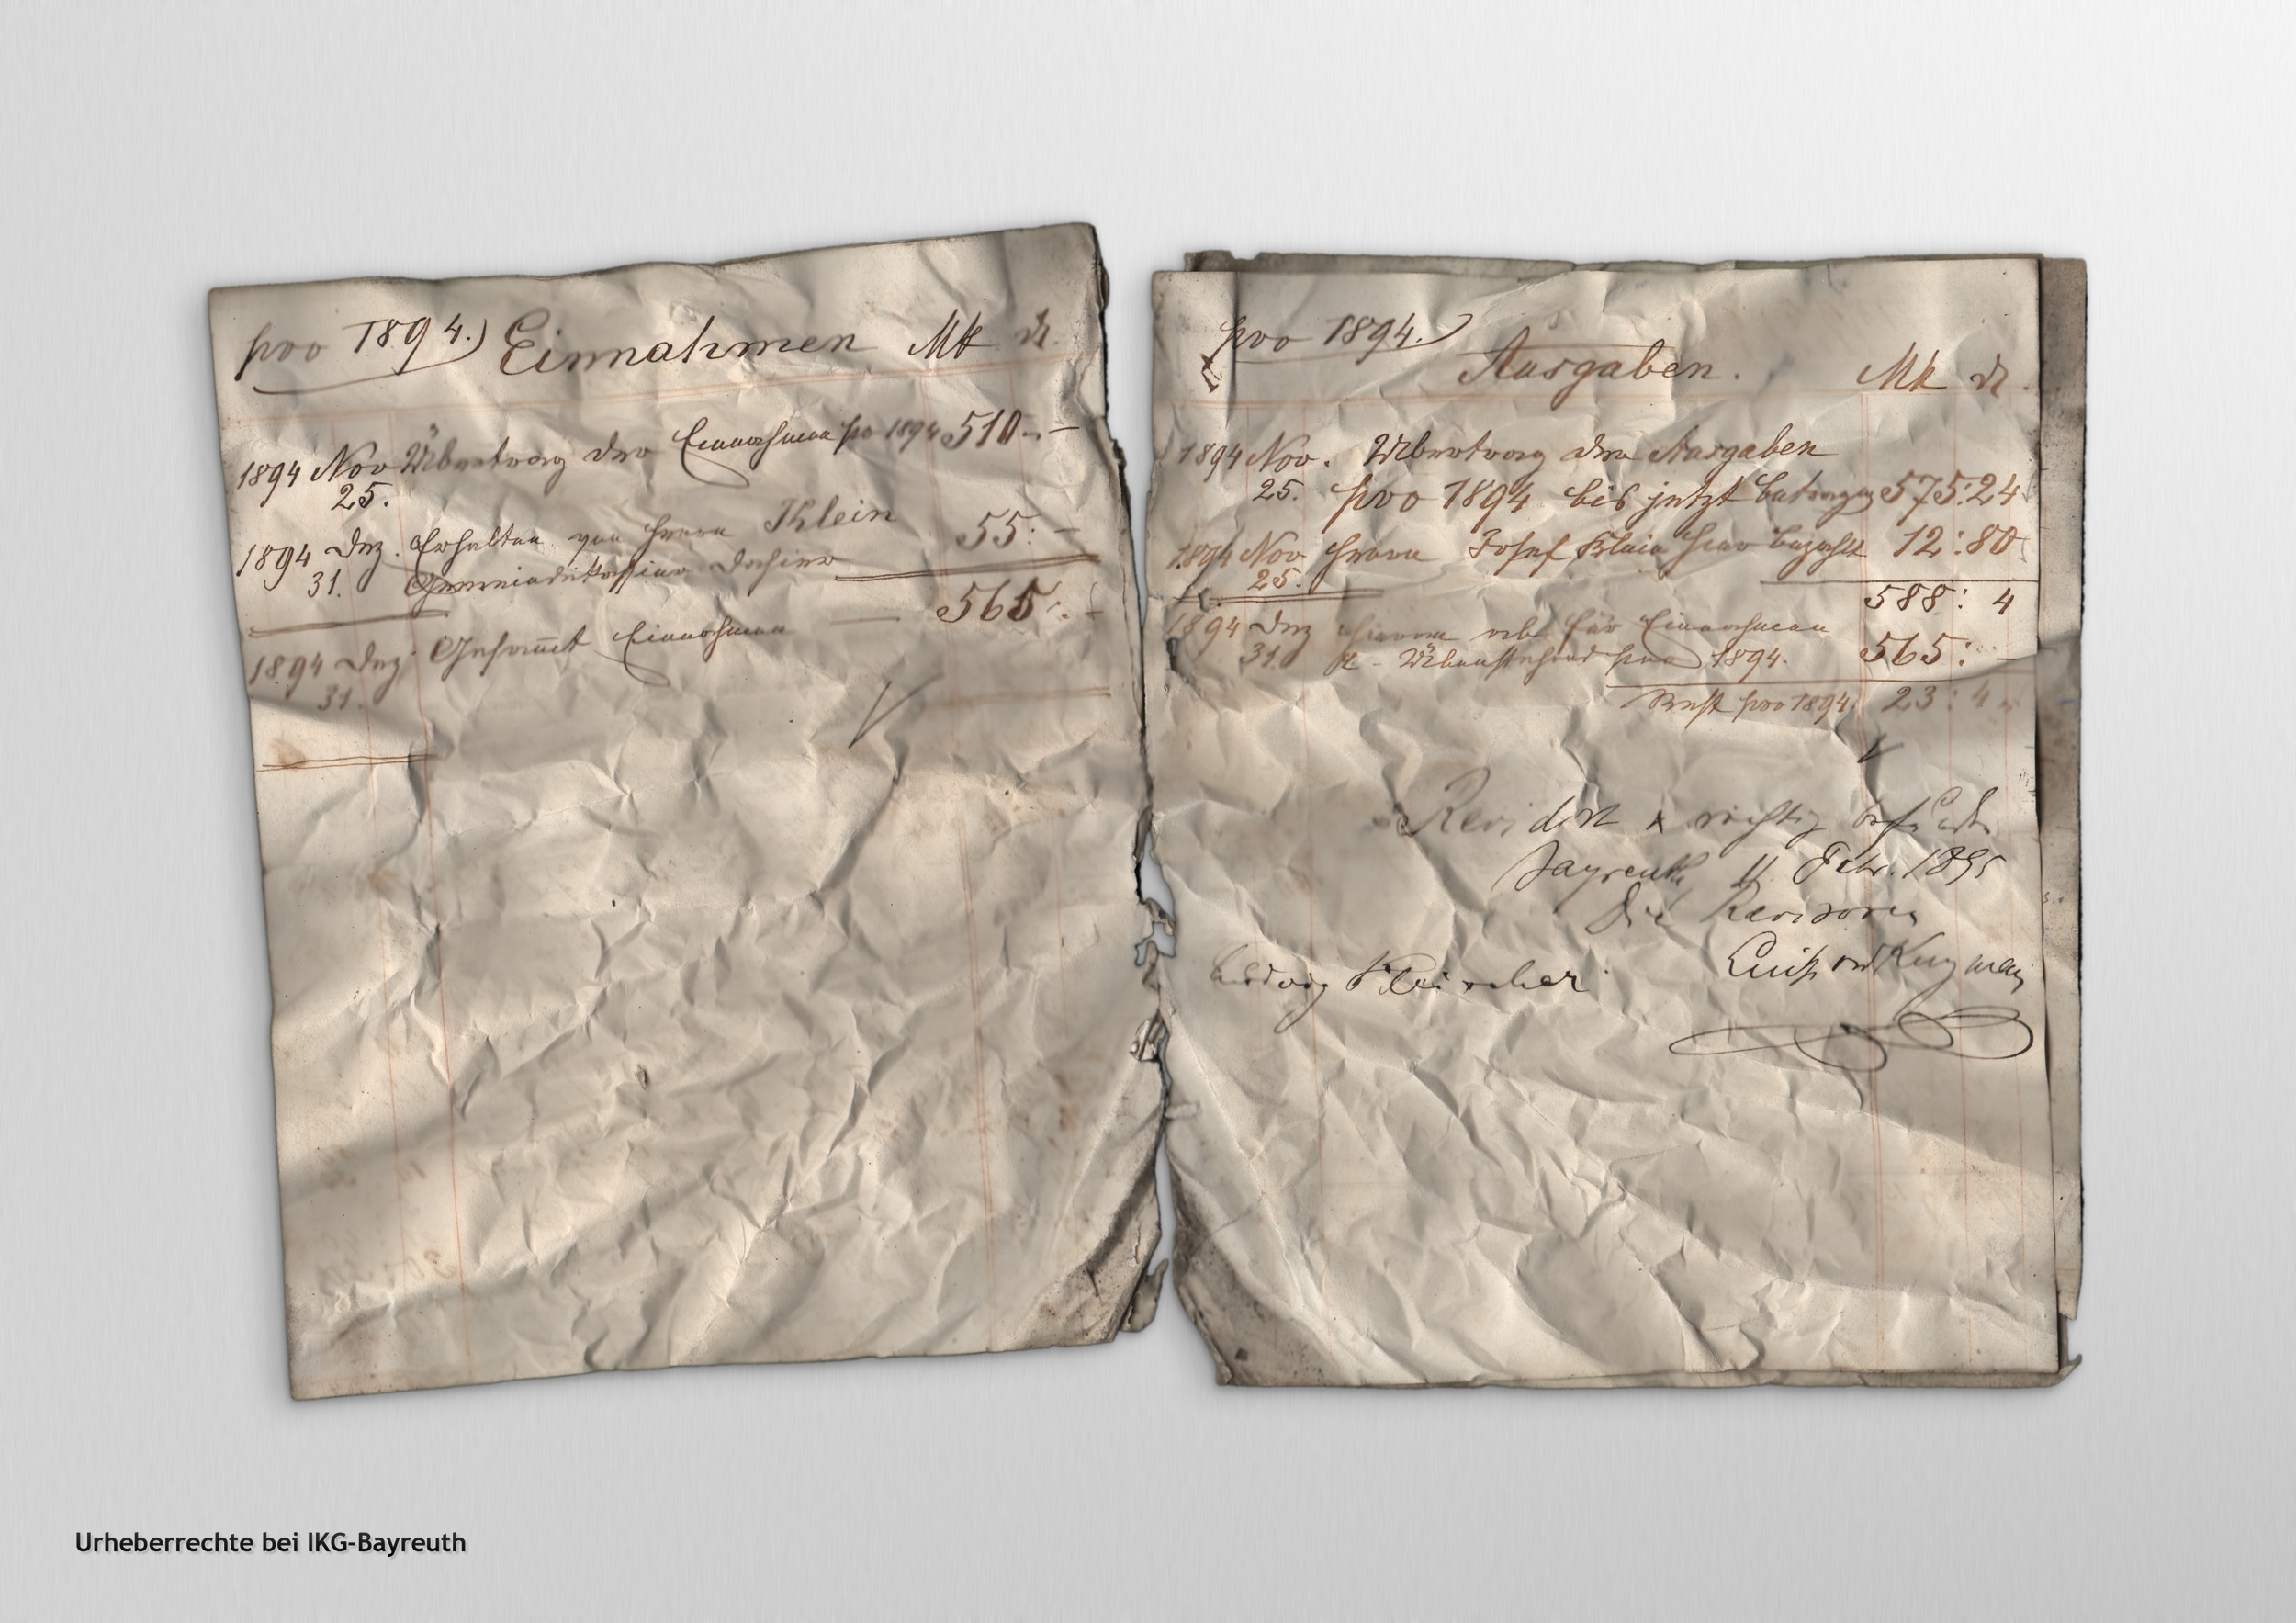 pro 1894.) Einnahmen Mk ₰.
1894 Nov Übertrag der Einnahmen pro 1894 510.-
25.
1894 Dez. Erhalten von Herrn Klein 55:-
31. Gemeindekassier dahier
565:-
1894 Dez. Gesam̅t Einnahmen
31.
pro 1894.)
Ausgaben. Mk ₰.
1894 Nov. Übertrag der Ausgaben
25. pro 1894 bis jetzt betragen 575:24
1894 Nov Herrn Josef Klein hier bezahlt 12:80
25.
588: 4
1894 Dez hievon ab für Einnahmen
31. Übenstehend pro 1894. 565: -
Rest pro 1894 23: 4
Revidirt & richtig befunden
Bayreuth 11 Febr. 1895
Die Revisoren
Ludwig Fleischer
Urheberrechte bei IKG-Bayreuth